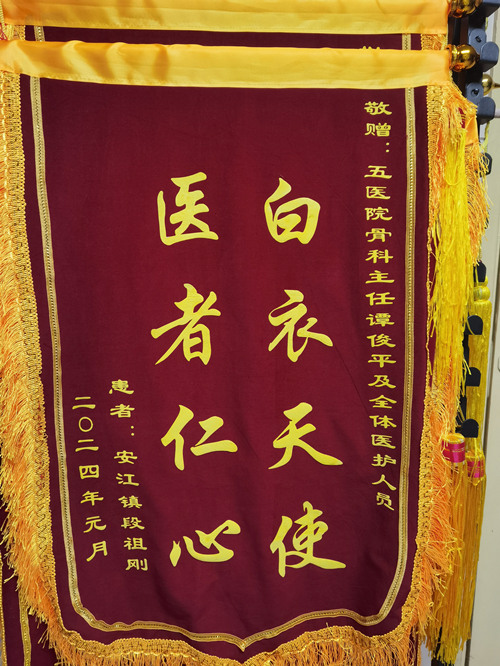 敬赠：五医院骨科主任谭俊平及全体医护人员
白衣天使
医者仁心
患者：安江镇段祖刚
二〇二四年元月